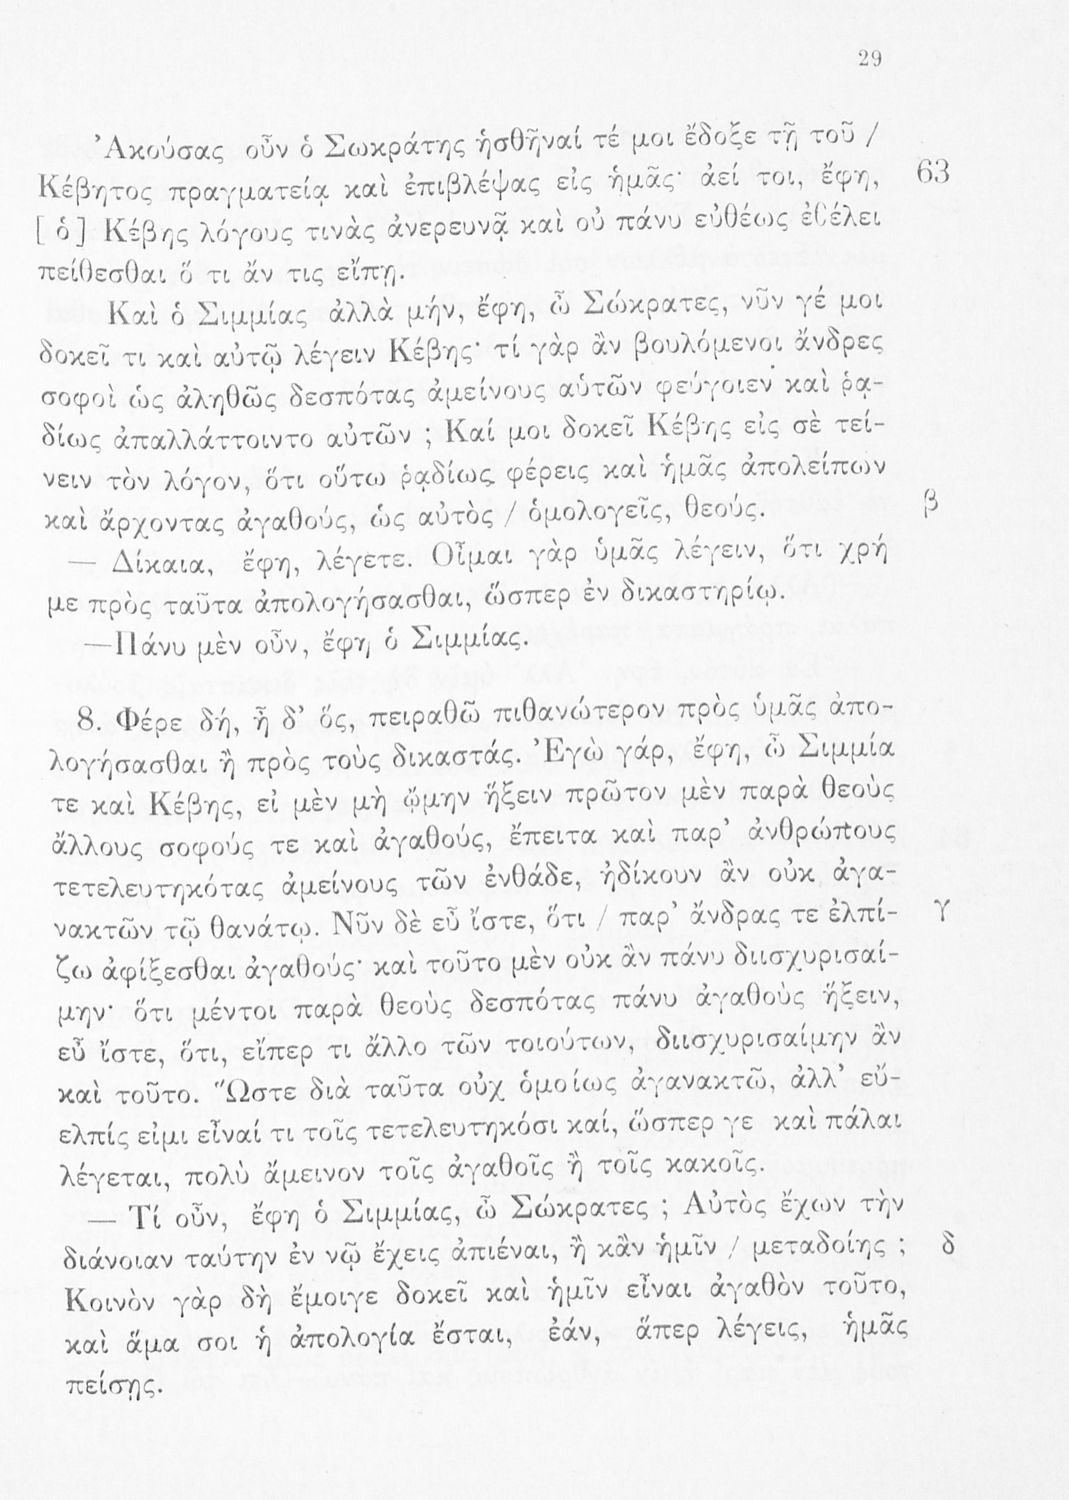 29
Ἀκούσας οὖν ὁ Σωκράτης ἡσθῆναί τέ μοι ἔδοξε τῇ τοῦ /
Κέβητος πραγματείᾳ καὶ ἐπιβλέψας εἰς ἡμᾶς· ἀεί τοι, ἔφη, 63
[ὁ] Κέβης λόγους τινὰς ἀνερευνᾷ καὶ οὐ πάνυ εὐθέως ἐθέλει
πείθεσθαι ὅ τι ἄν τις εἴπῃ.
Καὶ ὁ Σιμμίας ἀλλὰ μήν, ἔφη, ὦ Σώκρατες, νῦν γέ μοι
δοκεῖ τι καὶ αὐτῷ λέγειν Κέβης· τί γὰρ ἂν βουλόμενοι ἄνδρες
σοφοὶ ὡς ἀληθῶς δεσπότας ἀμείνους αὑτῶν φεύγοιεν καὶ ῥᾳ-
δίως ἀπαλλάττοιντο αὐτῶν ; Καί μοι δοκεῖ Κέβης εἰς σὲ τεί-
νειν τὸν λόγον, ὅτι οὕτω ῥᾳδίως φέρεις καὶ ἡμᾶς ἀπολείπων
καὶ ἄρχοντας ἀγαθούς, ὡς αὐτὸς / ὁμολογεῖς, θεούς. β
— Δίκαια, ἔφη, λέγετε. Οἶμαι γὰρ ὑμᾶς λέγειν, ὅτι χρή
με πρὸς ταῦτα ἀπολογήσασθαι, ὥσπερ ἐν δικαστηρίῳ.
—Πάνυ μὲν οὖν, ἔφη ὁ Σιμμίας.
8. Φέρε δή, ἦ δ’ ὅς, πειραθῶ πιθανώτερον πρὸς ὑμᾶς ἀπο-
λογήσασθαι ἢ πρὸς τοὺς δικαστάς. Ἐγὼ γάρ, ἔφη, ὦ Σιμμία
τε καὶ Κέβης, εἰ μὲν μὴ ᾤμην ἥξειν πρῶτον μὲν παρὰ θεοὺς
ἄλλους σοφούς τε καὶ ἀγαθούς, ἔπειτα καὶ παρ’ ἀνθρώπους
τετελευτηκότας ἀμείνους τῶν ἐνθάδε, ἠδίκουν ἂν οὐκ ἀγα-
νακτῶν τῷ θανάτῳ. Νῦν δὲ εὖ ἴστε, ὅτι / παρ’ ἄνδρας τε ἐλπί- γ
ζω ἀφίξεσθαι ἀγαθούς· καὶ τοῦτο μὲν οὐκ ἂν πάνυ διισχυρισαί-
μην· ὅτι μέντοι παρὰ θεοὺς δεσπότας πάνυ ἀγαθοὺς ἥξειν,
εὖ ἴστε, ὅτι, εἴπερ τι ἄλλο τῶν τοιούτων, διισχυρισαίμην ἂν
καὶ τοῦτο. Ὥστε διὰ ταῦτα οὐχ ὁμοίως ἀγανακτῶ, ἀλλ’ εὔ-
ελπίς εἰμι εἶναί τι τοῖς τετελευτηκόσι καί, ὥσπερ γε καὶ πάλαι
λέγεται, πολὺ ἄμεινον τοῖς ἀγαθοῖς ἢ τοῖς κακοῖς.
— Τί οὖν, ἔφη ὁ Σιμμίας, ὦ Σώκρατες ; Αὐτὸς ἔχων τὴν
διάνοιαν ταύτην ἐν νῷ ἔχεις ἀπιέναι, ἢ κἂν ἡμῖν / μεταδοίης ; δ
Κοινὸν γὰρ δὴ ἔμοιγε δοκεῖ καὶ ἡμῖν εἶναι ἀγαθὸν τοῦτο,
καὶ ἅμα σοι ἡ ἀπολογία ἔσται, ἐάν, ἅπερ λέγεις, ἡμᾶς
πείσῃς.